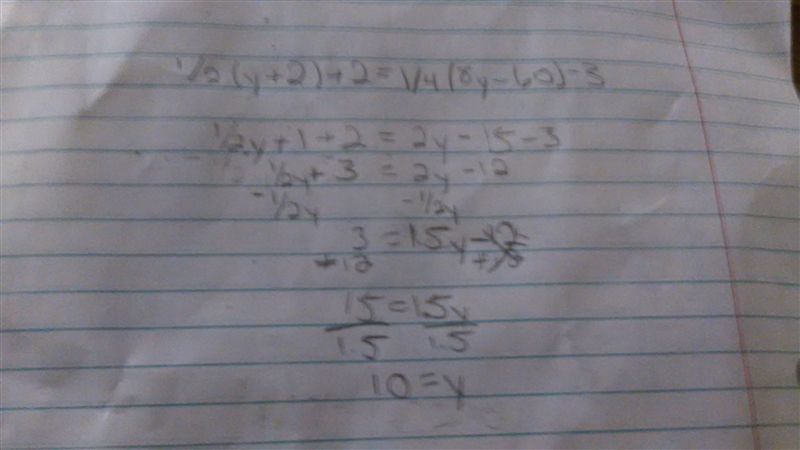 1/2(y+2)+2=1/4(8y-60)-3
1/2y+1+2=2y-15-3
1/2y+3=2y-12
-1/2y -1/2y
3=1.5y-12
+12 +12
15=1.5y
1.5 1.5
10=y